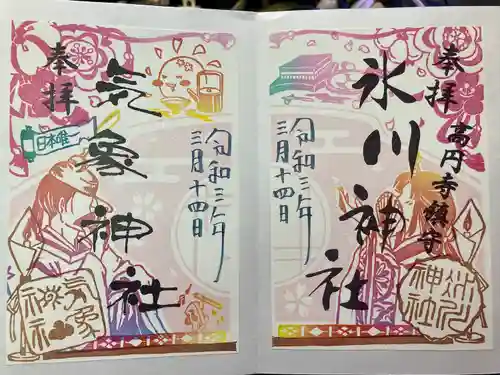 奉拝
高円寺鎮守
氷川神社
令和三年
三月十四日
奉拝
気象神社
日本唯一
令和三年
三月十四日